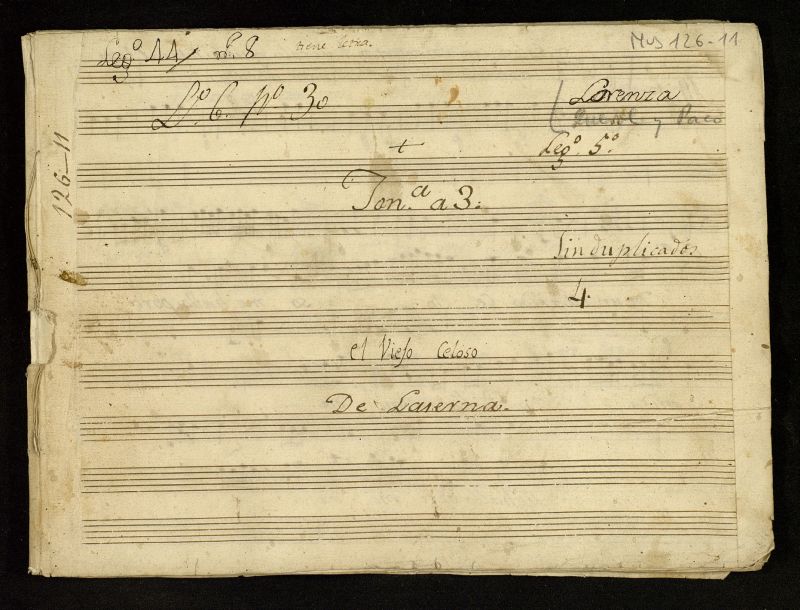 Leg.º 44 / n.º 8
tiene letra.
Mus 126-11
L.º 6. N.º 3º
Lorenza
y Paco
Leg.º 5.º
+
126-11
Ton.ª a 3:
Sin duplicados
4.
el Viejo Celoso
De Laserna.